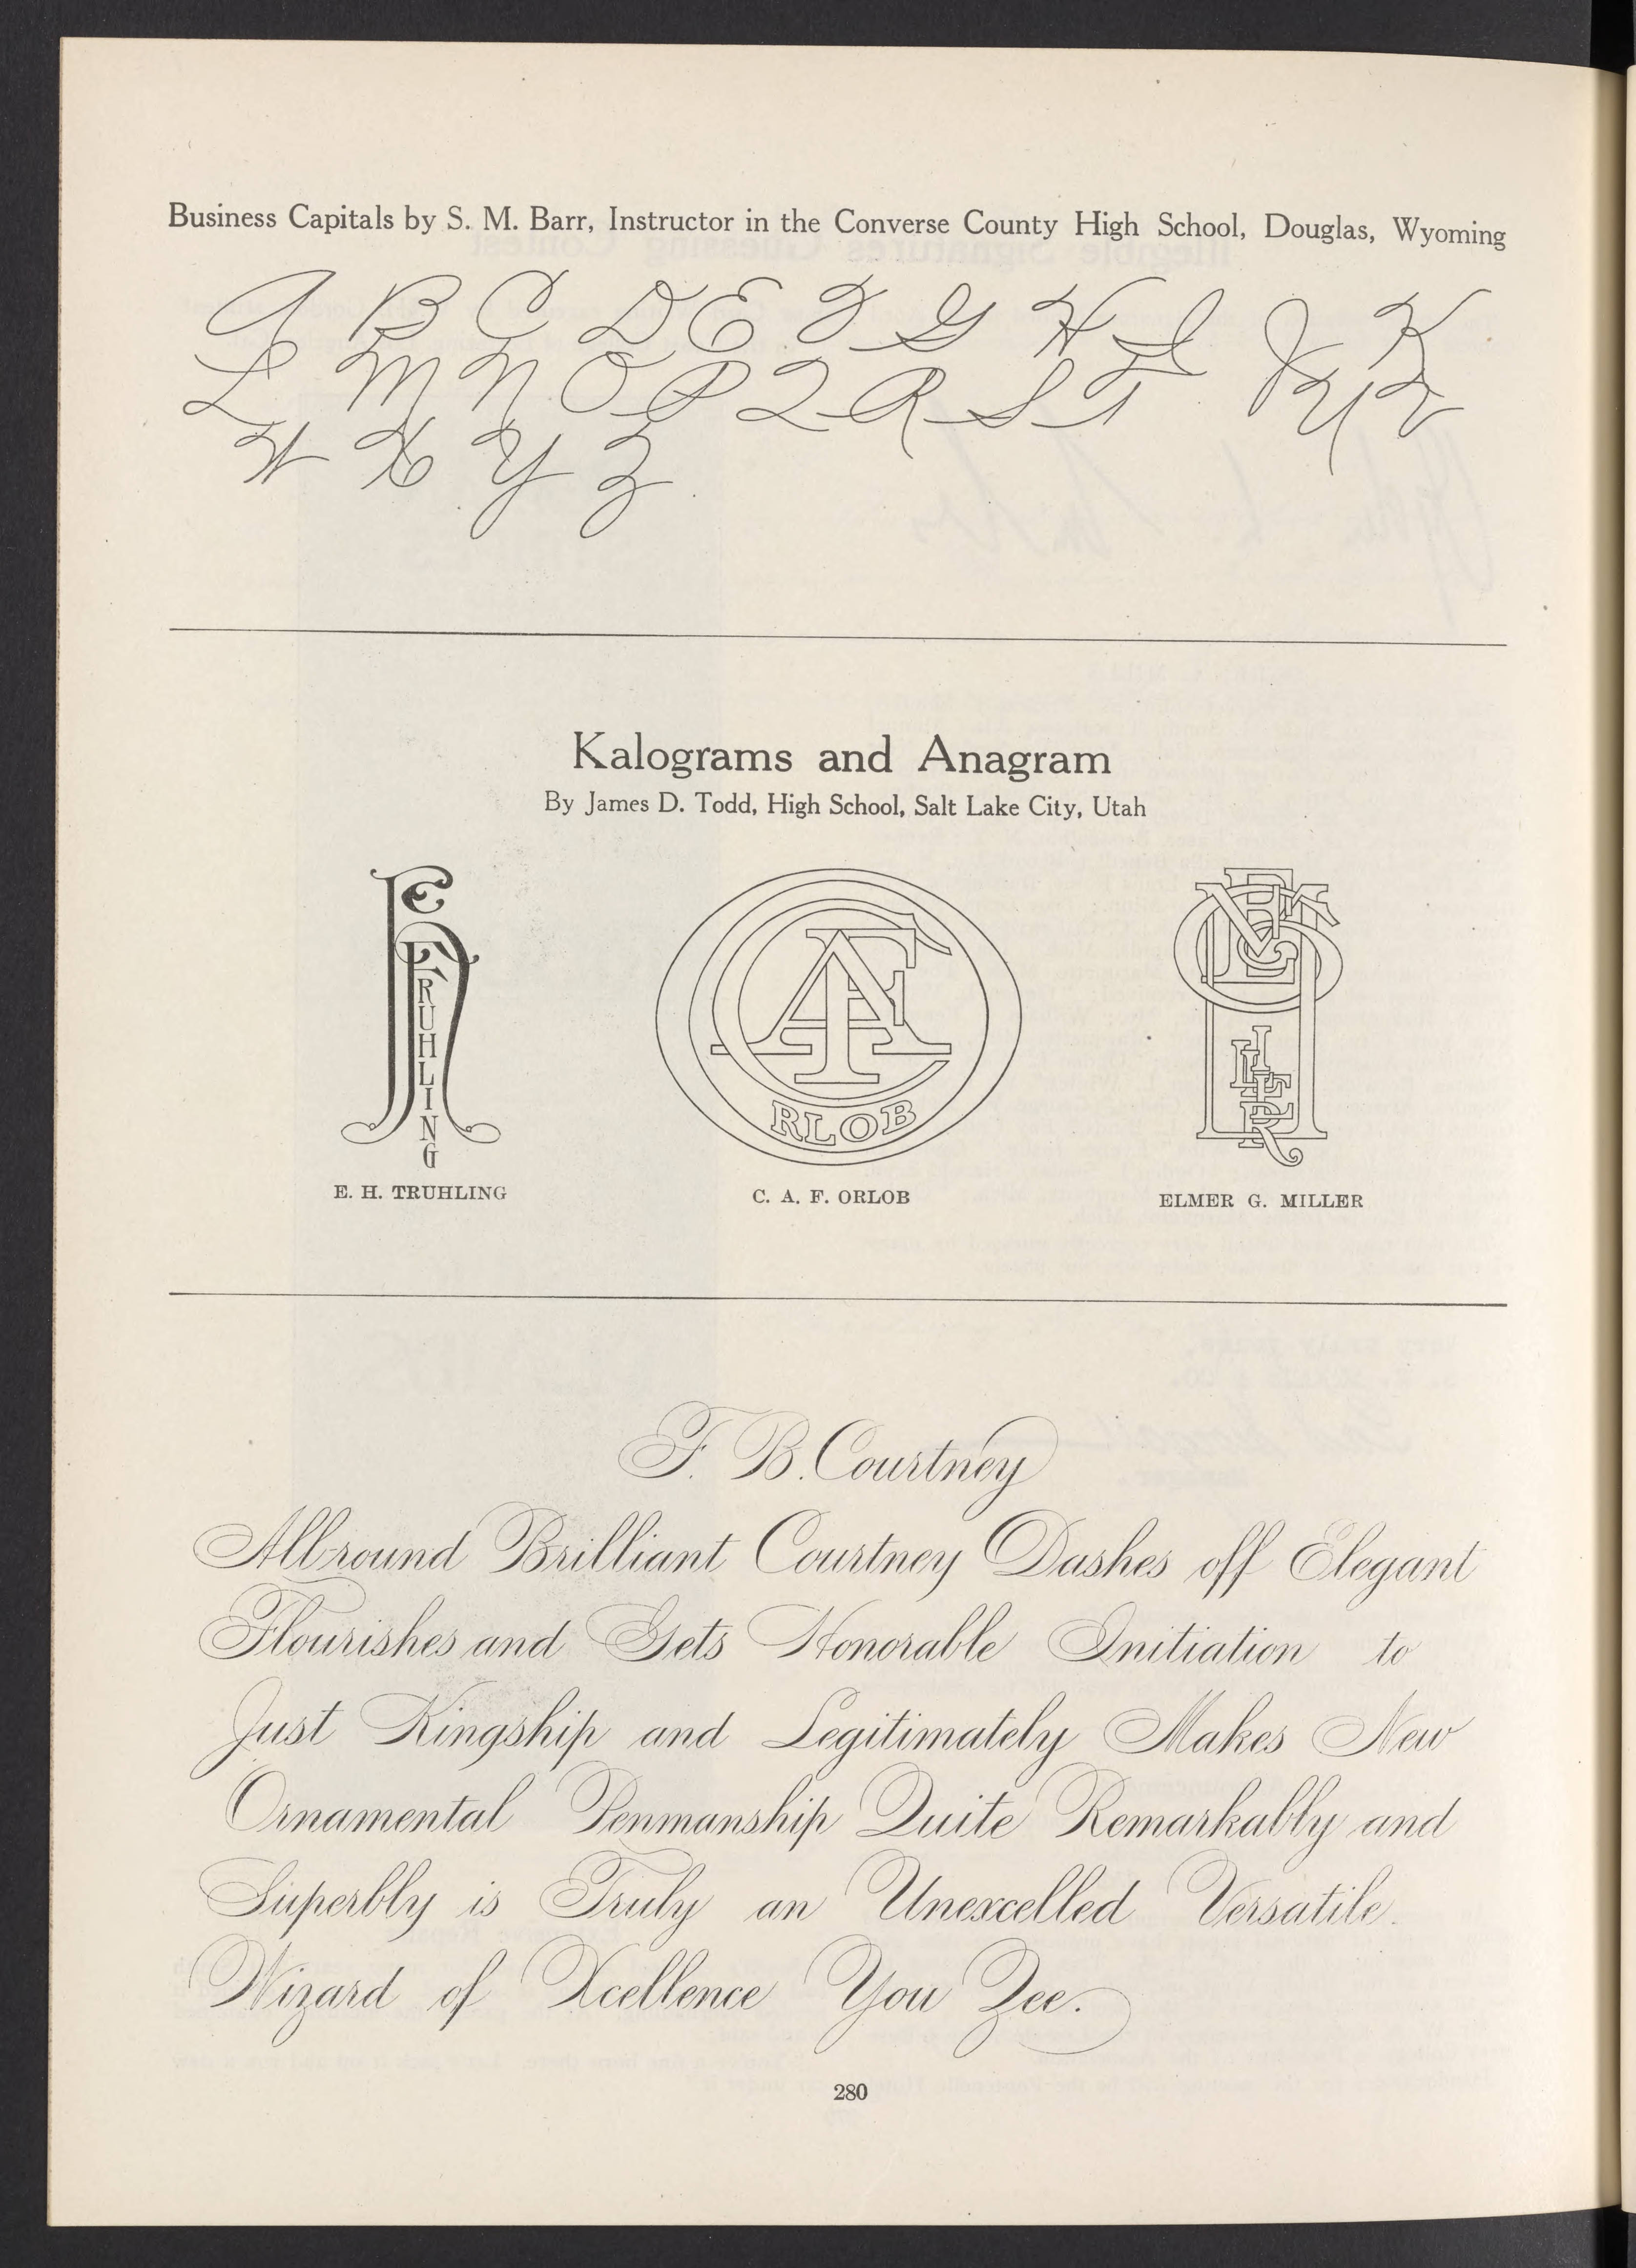 Business Capitals by S. M. Barr, Instructor in the Converse County High School, Douglas, Wyoming
A B C D E F G H I J K
L M N O P Q R S T U V
W X Y Z
Kalograms and Anagram
By James D. Todd, High School, Salt Lake City, Utah
E H TRUHLING
C A F ORLOB
ELMER G MILLER
E. H. TRUHLING
C. A. F. ORLOB
ELMER G. MILLER
F. B. Courtney
Allround Brilliant Courtney Dashes off Elegant
Flourishes and Gets Honorable Initiation to
Just Kingship and Legitimately Makes New
Ornamental Penmanship Quite Remarkably and
Superbly is Truly an Unexcelled Versatile
Wizard of Xcellence You Zee.
280